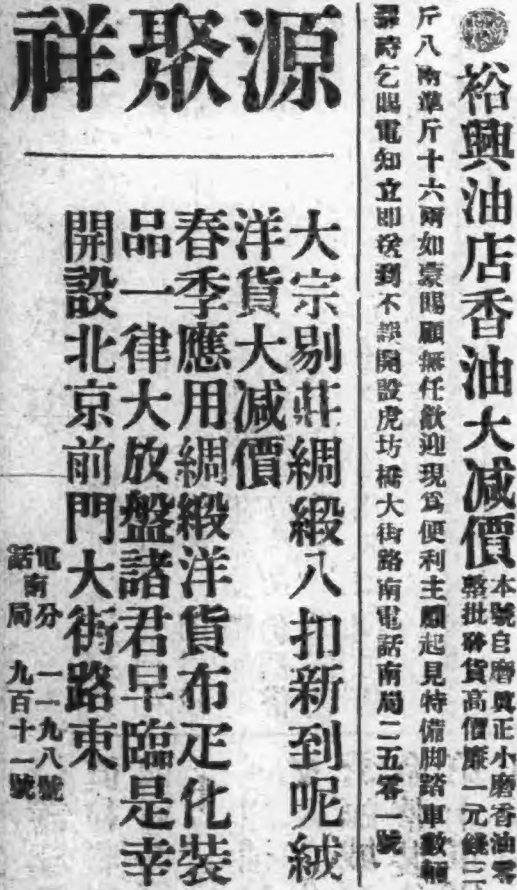 裕興油店香油大减價
本號自磨真正小磨香油零
整批貨高價廉一元錢三
斤八兩準斤十六兩如蒙賜顧無任歡迎現爲便利主顧起見特備脚踏車數輛
時乞賜電知立即送到不誤開設虎坊橋大街路南電話南局二五零一號
源聚祥
大宗剔莊綢緞八扣新到呢絨
洋貨大减價
春季應用綢緞洋貨布疋化裝
品一律大放盤諸君早臨是幸
開設北京前門大街路東
電話南分局 一一九八號
九百十一號